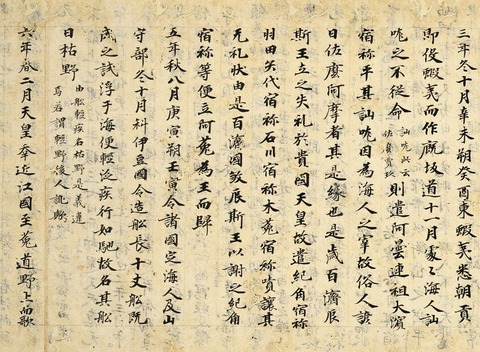 三年冬十月辛未朔癸酉東蝦夷悉朝貢
即役蝦夷而作厩坂道十一月處々海人訕
哤之不從命訕哤此云佐麼賣玖則遣阿曇連祖大濱
宿祢平其訕哤因為海人之宰故俗人諺
曰佐麼阿摩者其是縁也是歳百濟辰
斯王立之失礼於貴國天皇故遣紀角宿祢
羽田矢代宿祢石川宿祢木菟宿祢嘖譲其
无礼状由是百濟國敦辰斯王以謝之紀角
宿祢等便立阿菀為王而歸
五年秋八月庚寅朔壬寅令諸國定海人及山
守部冬十月科伊豆國令造舩長十丈舩既
成之試浮于海便軽泛疾行如馳故名其舩
曰枯野由舩軽疾名枯野是義違焉若謂軽野後人訛歟
六年春二月天皇幸近江國至菟道野上而歌